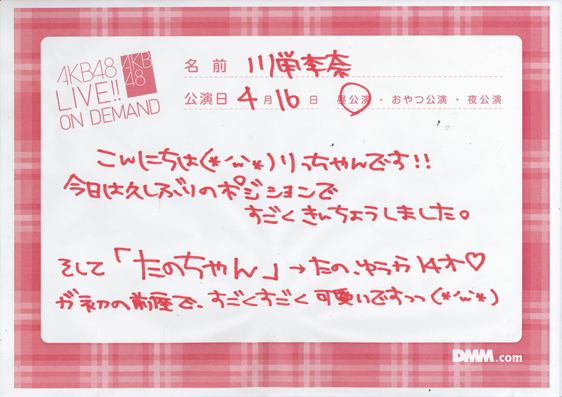 AKB48
LIVE!!
ON DEMAND
AKB
48
名前 川栄李奈
公演日 4月16日 昼公演・おやつ公演・夜公演
こんにちは(*´ω`*)りっちゃんです!!
今日は久しぶりのポジションで
すごくきんちょうしました。
そして「たのちゃん」→たの、ゆうか14才♡
が初の前座で、すごくすごく可愛いですっっ(*´ω`*)
DMM.com